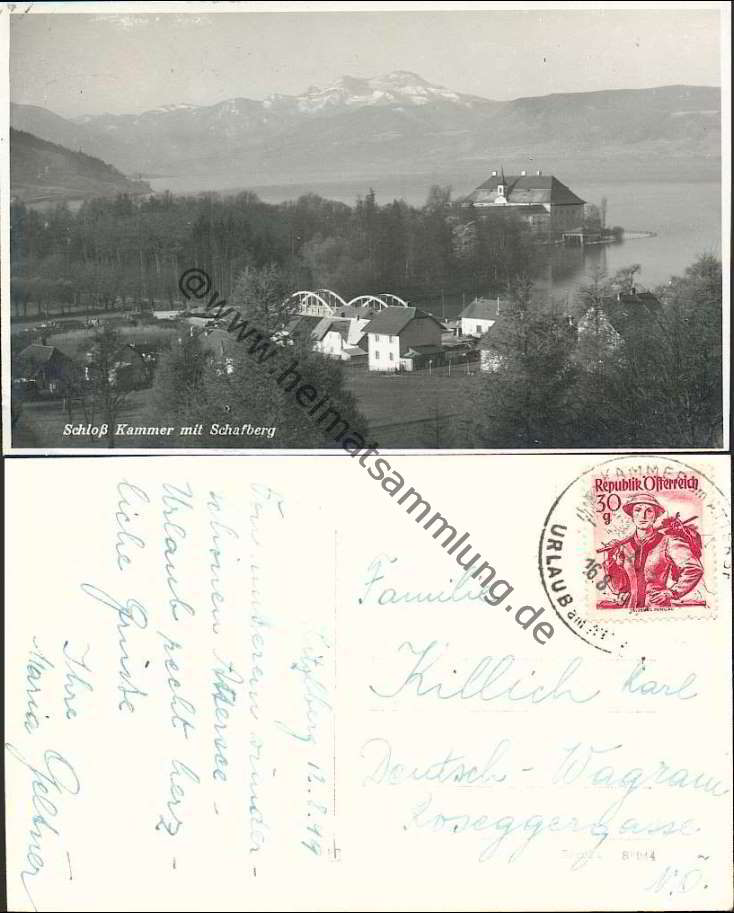 Schloß Kammer mit Schafberg
@www.heimatsammlung.de
Litzlberg 12.8.49
Von unserem wunder-
schönen Attersee-
Urlaub recht herz-
liche Grüße
Ihre
Maria Geltner
KAMMER am ATTERSEE
URLAUB am
16.8
Republik Österreich
30
g
Familie
Killich Karl
Deutsch-Wagram
Roseggergasse
N.Ö.